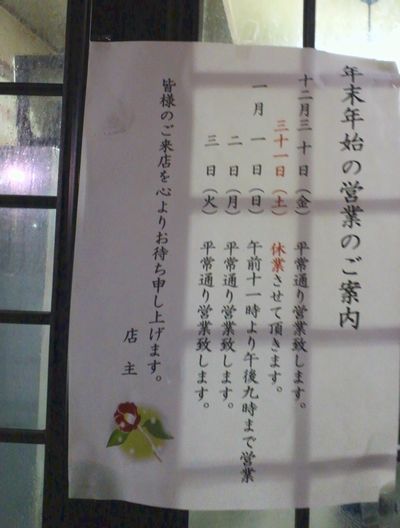 年末年始の営業のご案内
十二月三十日（金）　平常通り営業致します。
三十一日（土）　休業させて頂きます。
一月　一日（日）　午前十一時より午後九時まで営業
二日（月）　平常通り営業致します。
三日（火）　平常通り営業致します。
皆様のご来店を心よりお待ち申し上げます。
店主